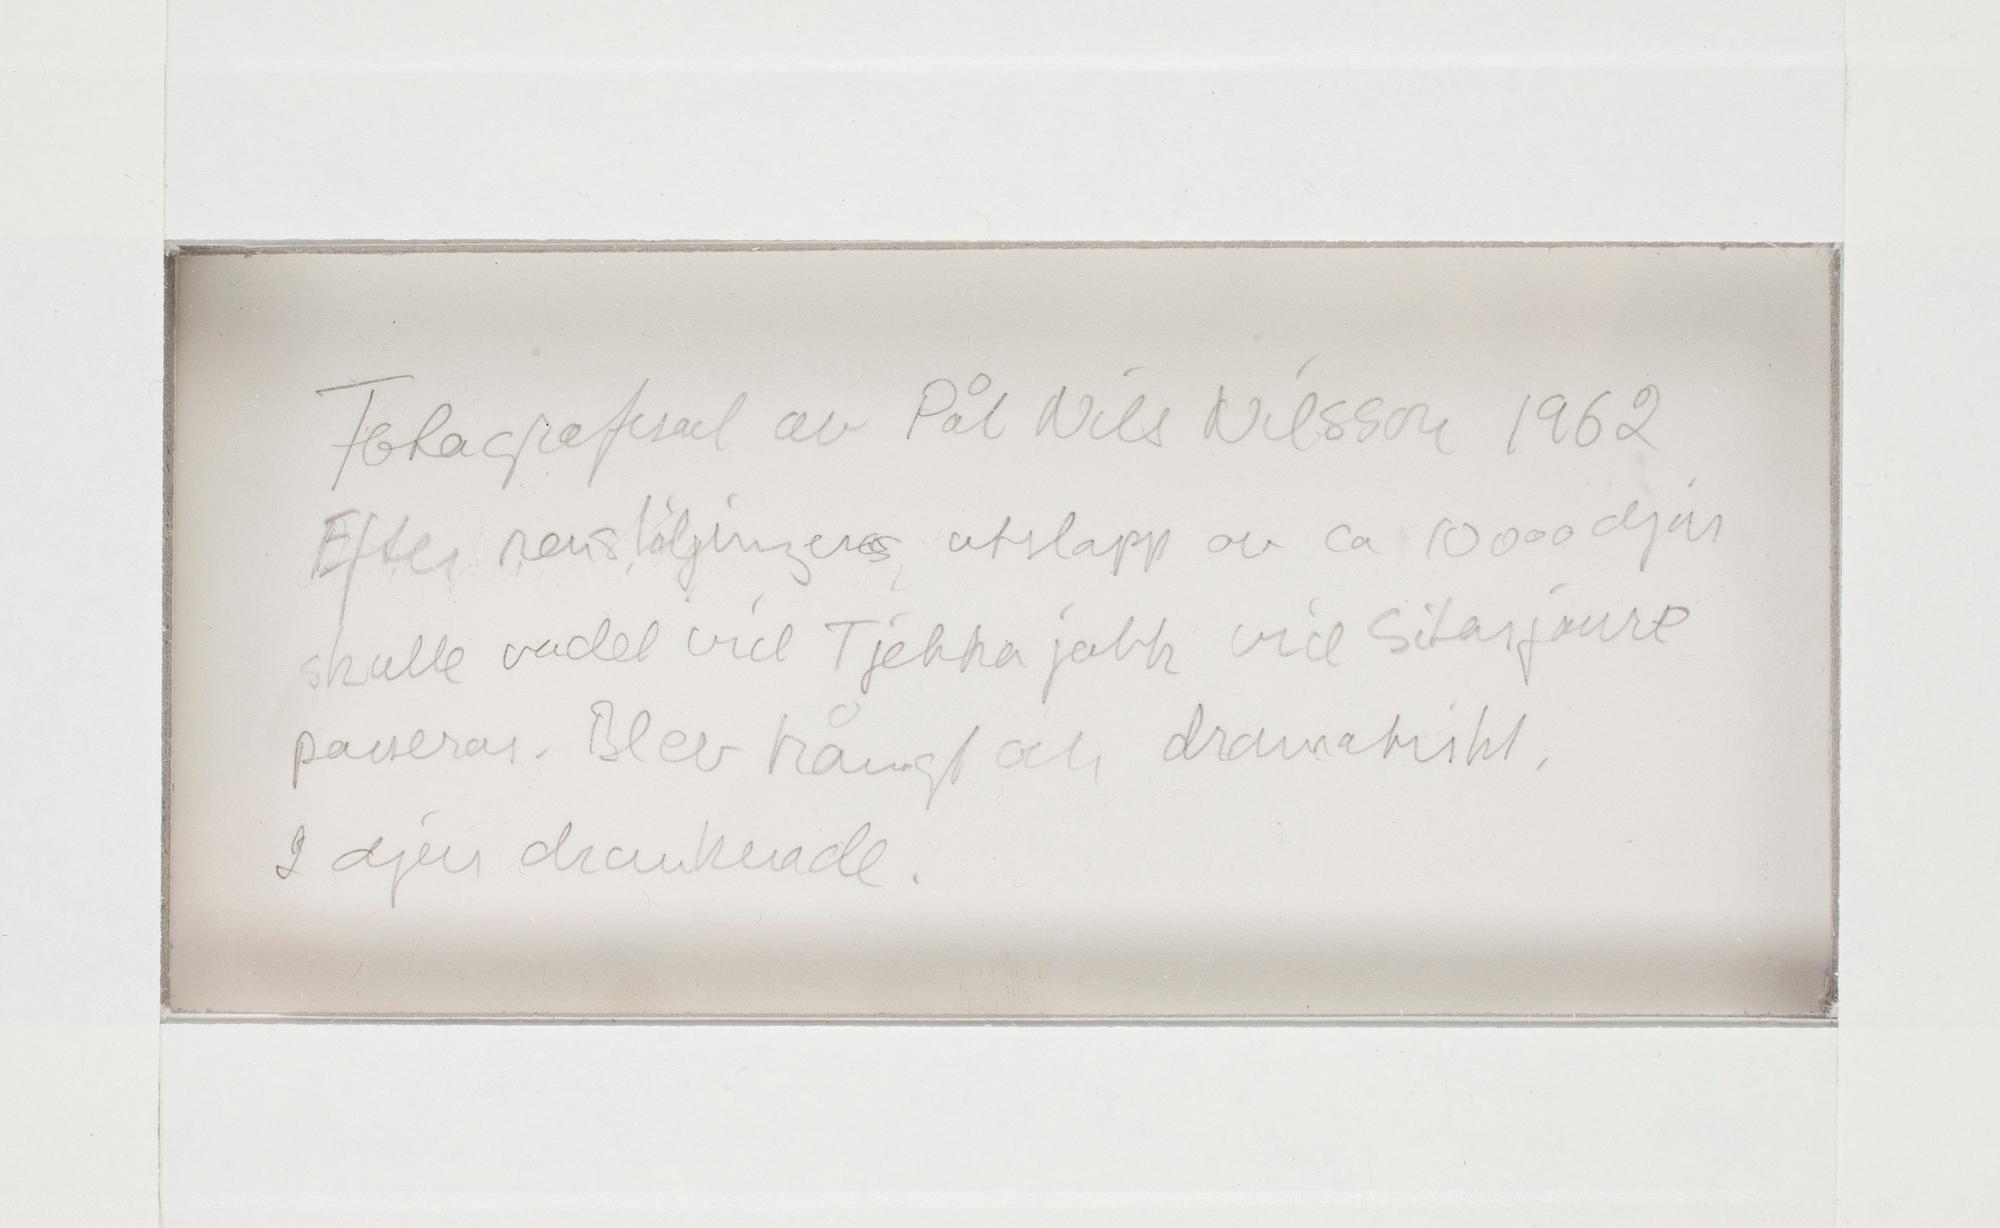 Fotograferad av Pål Nils Nilsson 1962
Efter renskiljningens utsläpp av ca 10000 djur
skulle vadet vid Tjekkajåkk vid Sitasjaure
passeras. Blev trångt och dramatiskt.
2 djur drunknade.